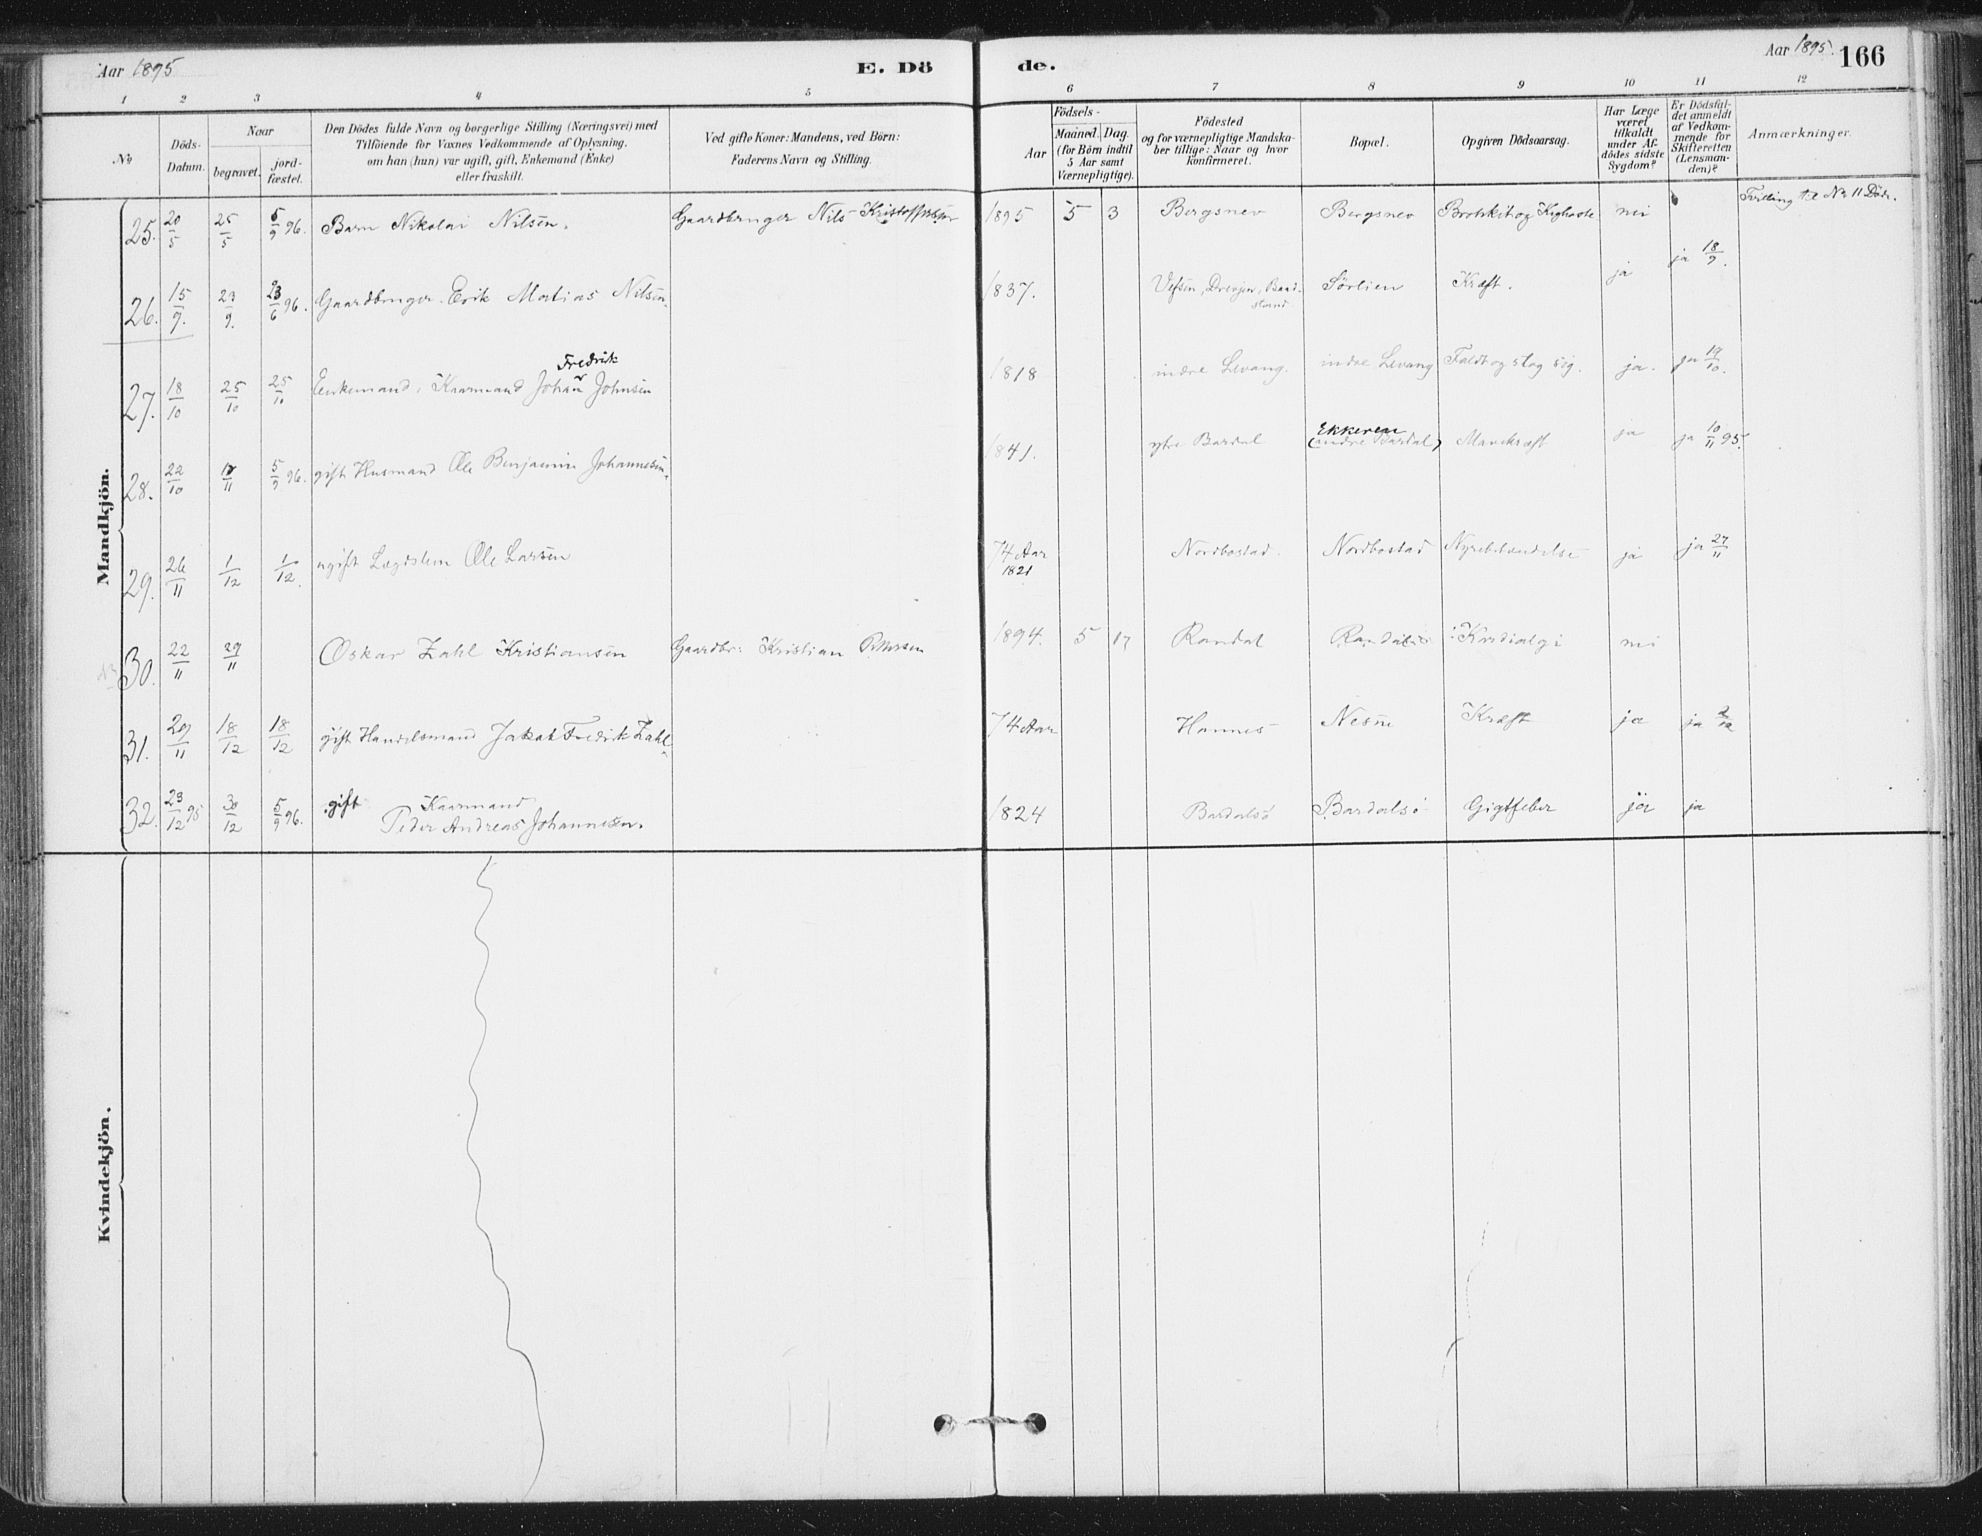 Aar 1895
E. Dö
de.
Aar 1895.
166
1 2 3 4 5 6 7 8 9 10 11 12
No
Döds-
Datum.
Naar
begravet.
jord-
fæstet.
Den Dödes fulde Navn og borgerlige Stilling (Næringsvei) med
Tilföiende for Voxnes Vedkommende af Oplysning,
om han (hun) var ugift, gift, Enkemand (Enke)
eller fraskilt.
Ved gifte Koner: Mandens, ved Börn:
Faderens Navn og Stilling.
Födsels-
Aar
Maaned. Dag.
(for Börn indtil
5 Aar samt
Værnepligtige).
Födested
og for værnepligtige Mandska-
ber tillige: Naar og hvor
konfirmeret.
Bopæl.
Opgiven Dödsaarsag.
Har Læge
været
tilkaldt
under Af-
dödes sidste
Sygdom?
Er Dödsfal-
det anmeldt
af Vedkom-
mende for
Skifteretten
(Lensman-
den)?
Anmærkninger.
Mandkjön.
25. 20/5 25/5 5/9 96. Barn Nikolai Nilsen. Gaardbruger Nils Kristoffersen 1895 5 3 Bergsnev Bergsnev nei Tvilling til No 11 Döde.
26. 15/9. 23/9. 23/6 96. Gaardbruger Erik Matias Nilsen. 1837. Vefsen, Drevjen, Baad-
strand Sörlien Kræft. ja ja 18/9.
Fredrik
27. 18/10 25/10 25/10 Enkemand, Kaarmand Johan Johnsen 1818 indre Levang. indre Levang Faldt og slog sig. ja. ja 19/10.
Ekkeren
28. 22/10 5/9 96. gift Husmand Ole Benjamin Johannesen. 1841. ytre Bardal (indre Bardal) Mavekræft ja ja 10/11 95.
29. 26/11 1/12 1/12. ugift Lægdslem Ole Larsen 74 Aar
1821 Nordbostad. Nordbostad Nyrebetændelse ja ja 27/11
30. 22/11 29/11 Oskar Zahl Kristiansen Gaardbr: Kristian Pettersen 1894. 5 17 Randal Kardialgi nei
31. 29/11 18/12 18/12 gift Handelsmand Jakob Fredrik Zahl 74 Aar Hannes Nesne Kræft ja ja 2/12
32. 23/12 95 30/12 5/9 96. gift Kaarmand
Peder Andreas Johannesen. 1824 Bardalsö Bardalsö Gigtfeber ja ja
Kvindekjön.